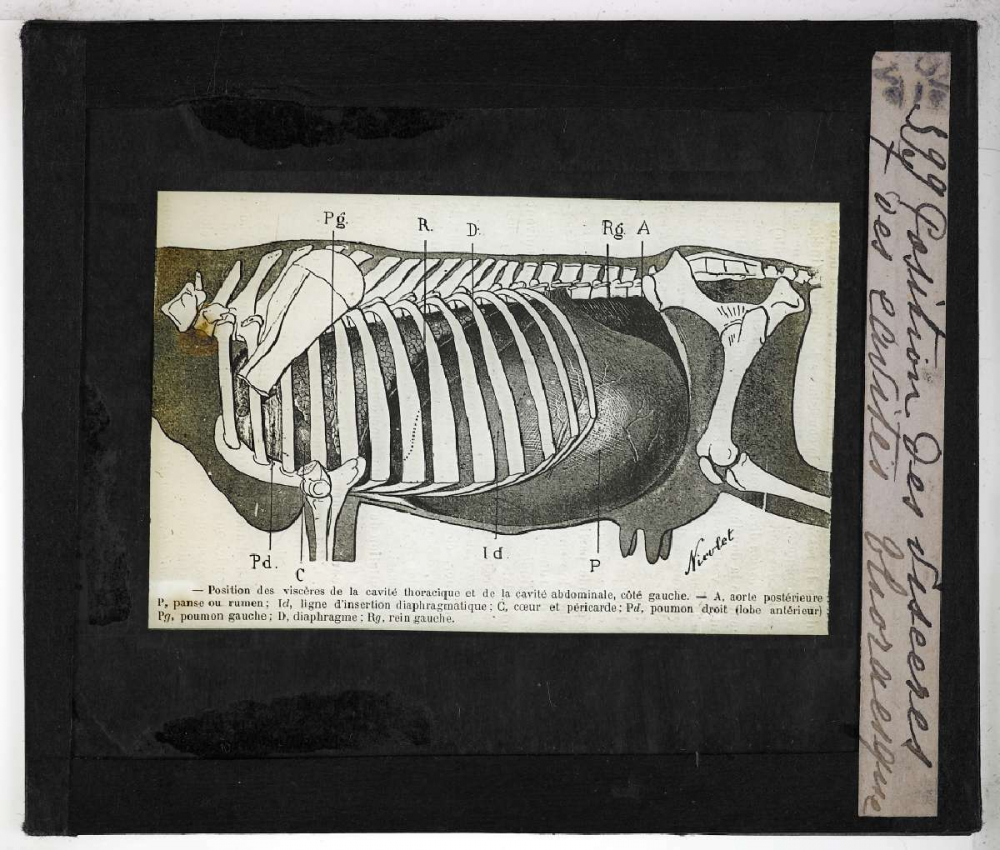 Pg. R. D. Rg. A
Pd. C Id. P
Nicolet
— Position des viscères de la cavité thoracique et de la cavité abdominale, côté gauche. — A, aorte postérieure
P, panse ou rumen; Id, ligne d'insertion diaphragmatique; C, cœur et péricarde; Pd, poumon droit (lobe antérieur)
Pg, poumon gauche; D, diaphragme; Rg, rein gauche.
Position des viscères
des cavités thoracique